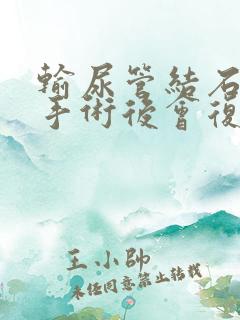 輸尿管結石
手術後會復
王小帥
未經同意禁止轉載